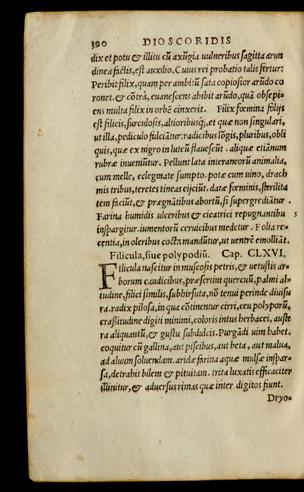 390 DIOSCORIDIS
dix et potu & illitu cũ axũgia vulneribus sagitta arun
dinea factis, est auxilio. Cuius rei probatio talis fertur:
Peribit filix, quam per ambitũ sata copiosior arũdo co
ronet. & cõtrà, euanescens abibit arũdo, quã obsepi-
ens multa filix in orbẽ cinxerit. Filix fœmina folijs
est filicis, surculosis, altioribusq́;, et quæ non singulari,
ut illa, pediculo fulciãtur: radicibus lõgis, pluribus, obli
quis, quæ ex nigro in luteũ flauescũt. aliquæ etiãnum
rubræ inueniũtur. Pellunt lata interaneorũ animalia,
cum melle, eclegmate sumpto. potæ cum uino, drach
mis tribus, teretes tineas eijciũt. datæ fœminis, sterilita
tem faciũt, & prægnãtibus abortũ, si supergrediãtur.
Farina humidis ulceribus & cicatrici repugnantibus
inspargitur. iumentorũ ceruicibus medetur. Folia re-
centia, in oleribus cocta mandũtur, ut uentrẽ emolliãt.
5
Filicula, siue polypodiũ. Cap. CLXVI.
Filicula nascitur in muscosis petris, & uetustis ar-
borum caudicibus, præsertim quercuũ, palmi al-
tudine, filici similis, subhirsuta, nõ tenui perinde diuisu
ra. radix pilosa, in qua cõtinentur cirri, ceu polyporũ,
crassitudine digiti minimi, coloris intus herbacei, auste
ra aliquantũ, & gustu subdulcis. Purgãdi uim habet.
coquitur cũ gallina, aut piscibus, aut beta, aut malua,
ad aluum soluendam. aridæ farina aquæ mulsæ inspar-
sa, detrahit bilem & pituitam. trita luxatis efficaciter
illinitur, & aduersus rimas quæ inter digitos fiunt.
Dryo-